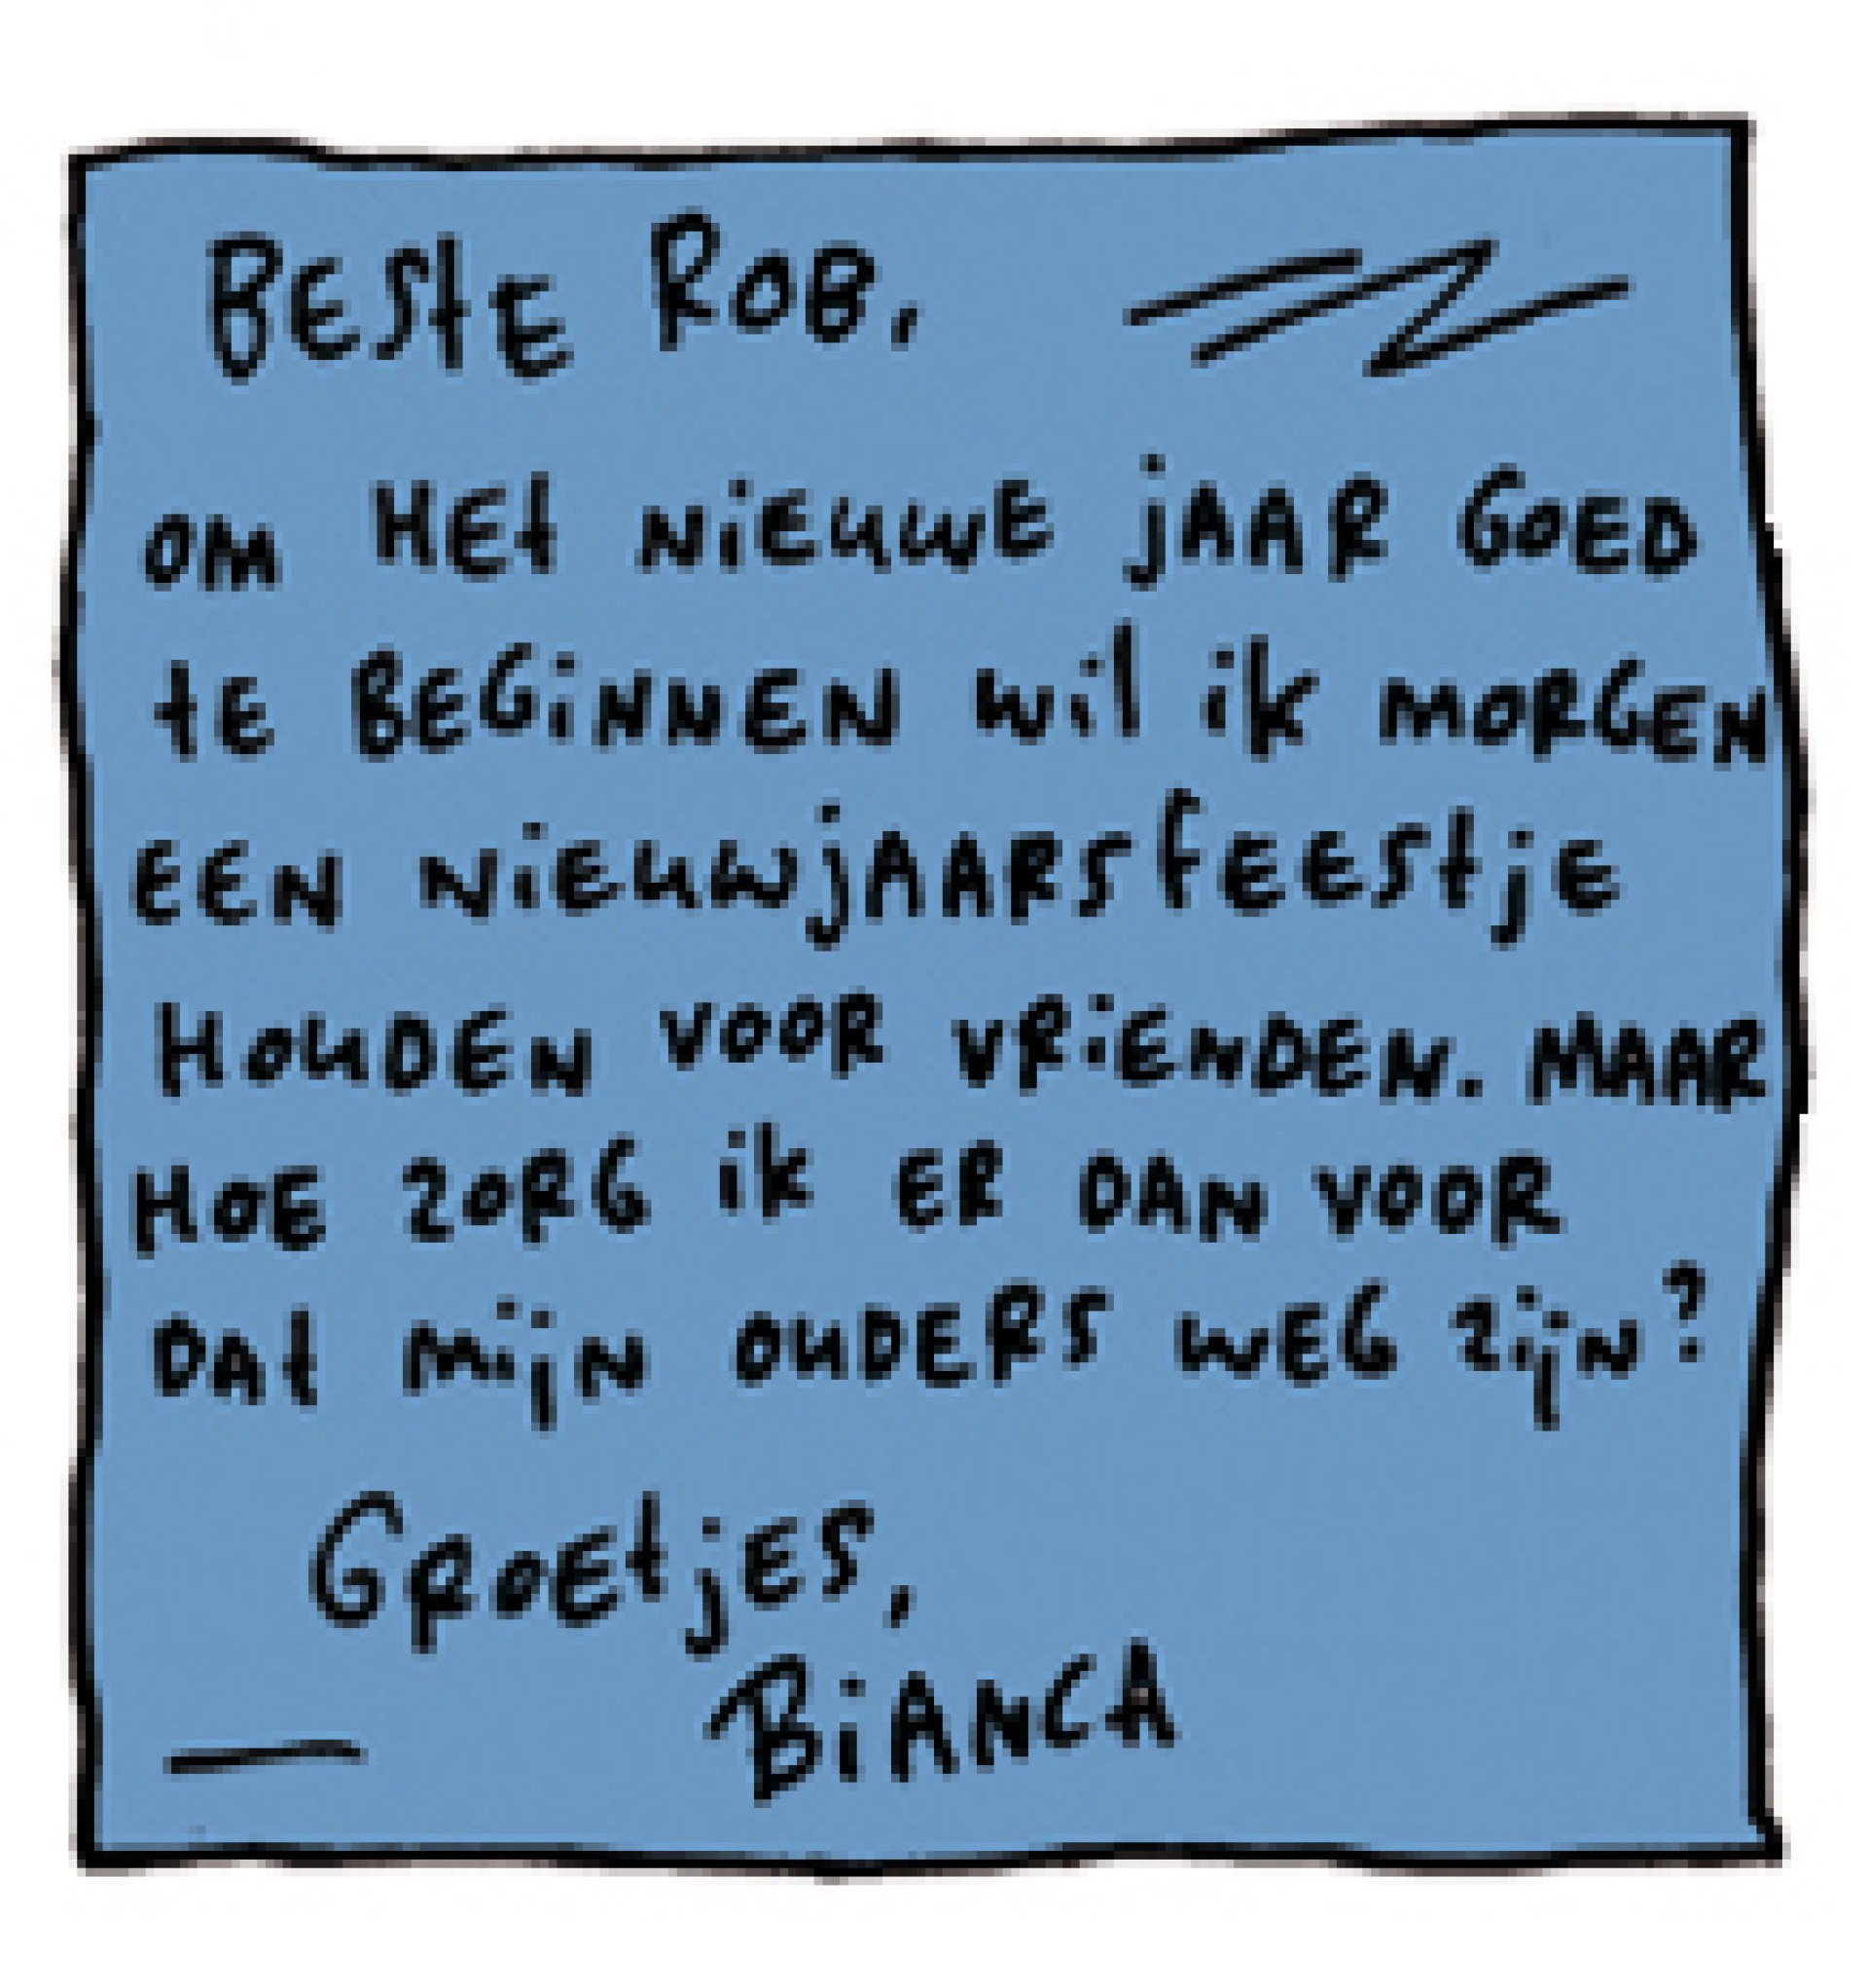 BESTE ROB,
OM HET NIEUWE JAAR GOED
TE BEGINNEN WIL IK MORGEN
EEN NIEUWJAARSFEESTJE
HOUDEN VOOR VRIENDEN. MAAR
HOE ZORG IK ER DAN VOOR
DAT MIJN OUDERS WEG ZIJN?
GROETJES,
BIANCA